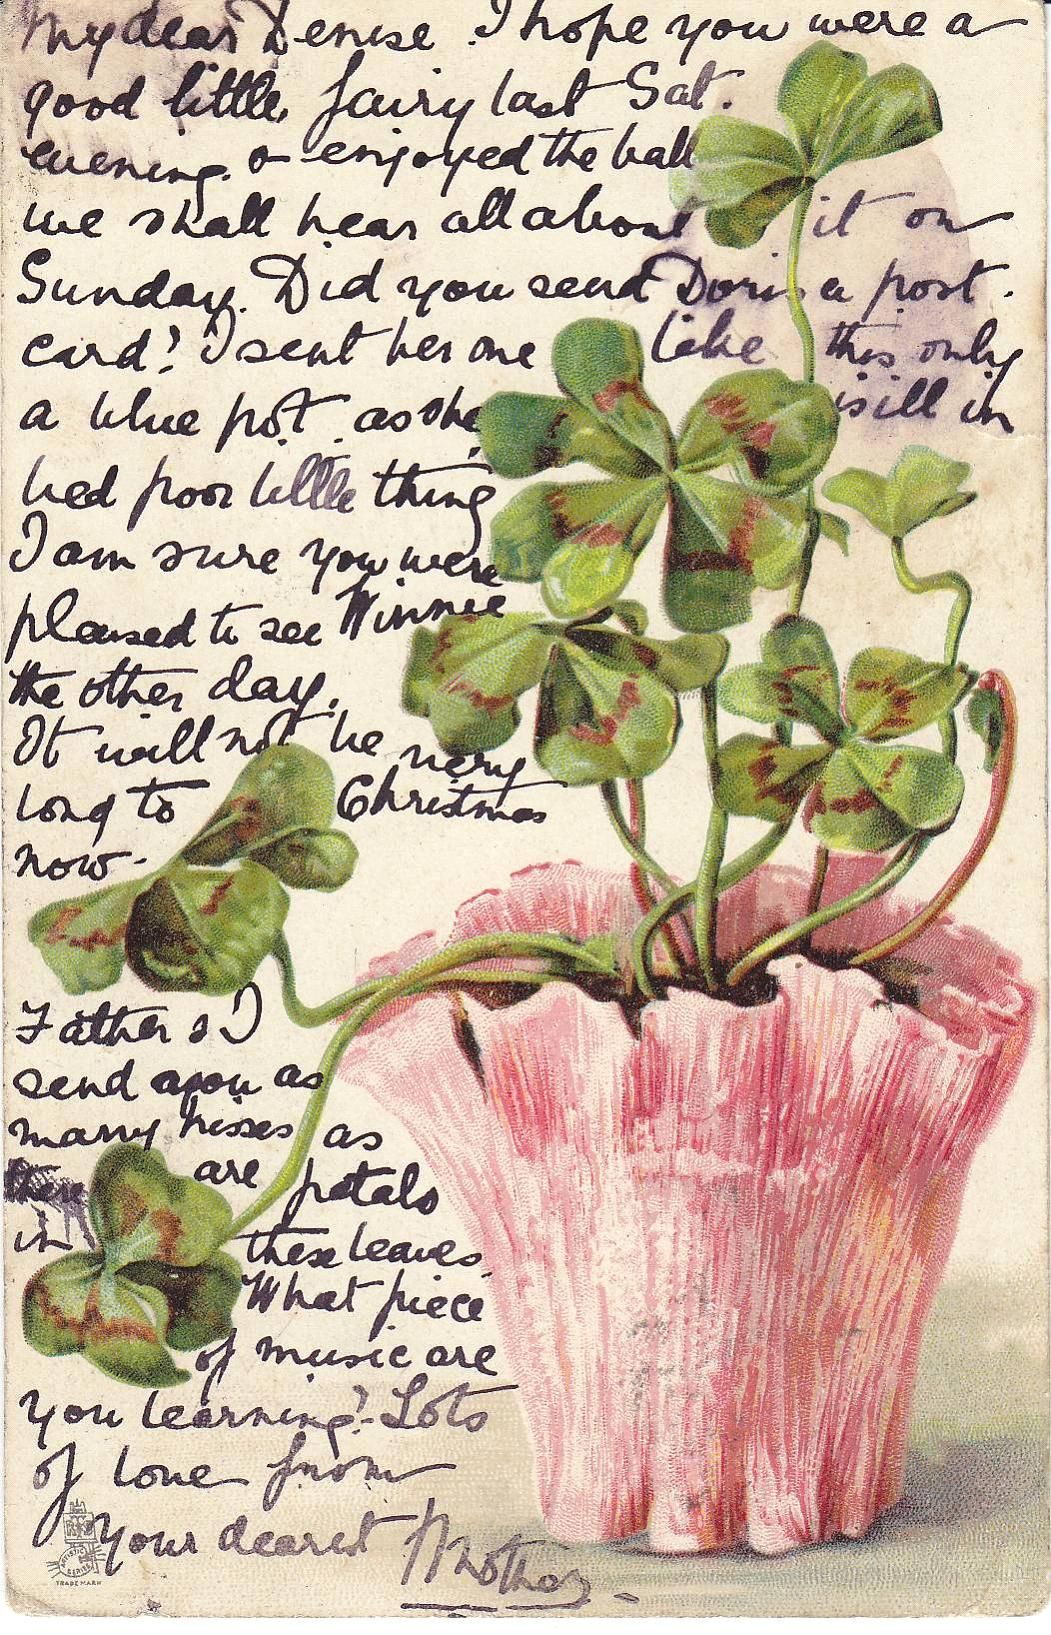 My dear Denise. I hope you were a
good little fairy last Sat.
evening. & enjoyed the ball
we shall hear all about it on
Sunday. Did you send Doris a post.
card? I sent her one like this only
a blue pot. as she is ill in
bed poor little thing
I am sure you were
pleased to see Winnie
the other day.
It will not be very
long to Christmas
now-
Father & I
send you as
many kisses as
there are petals
in these leaves.
What piece
of music are
you learning?-Lots
of love from
your dearest Mother.-
ARTISTIC
SERIES
TRADE MARK